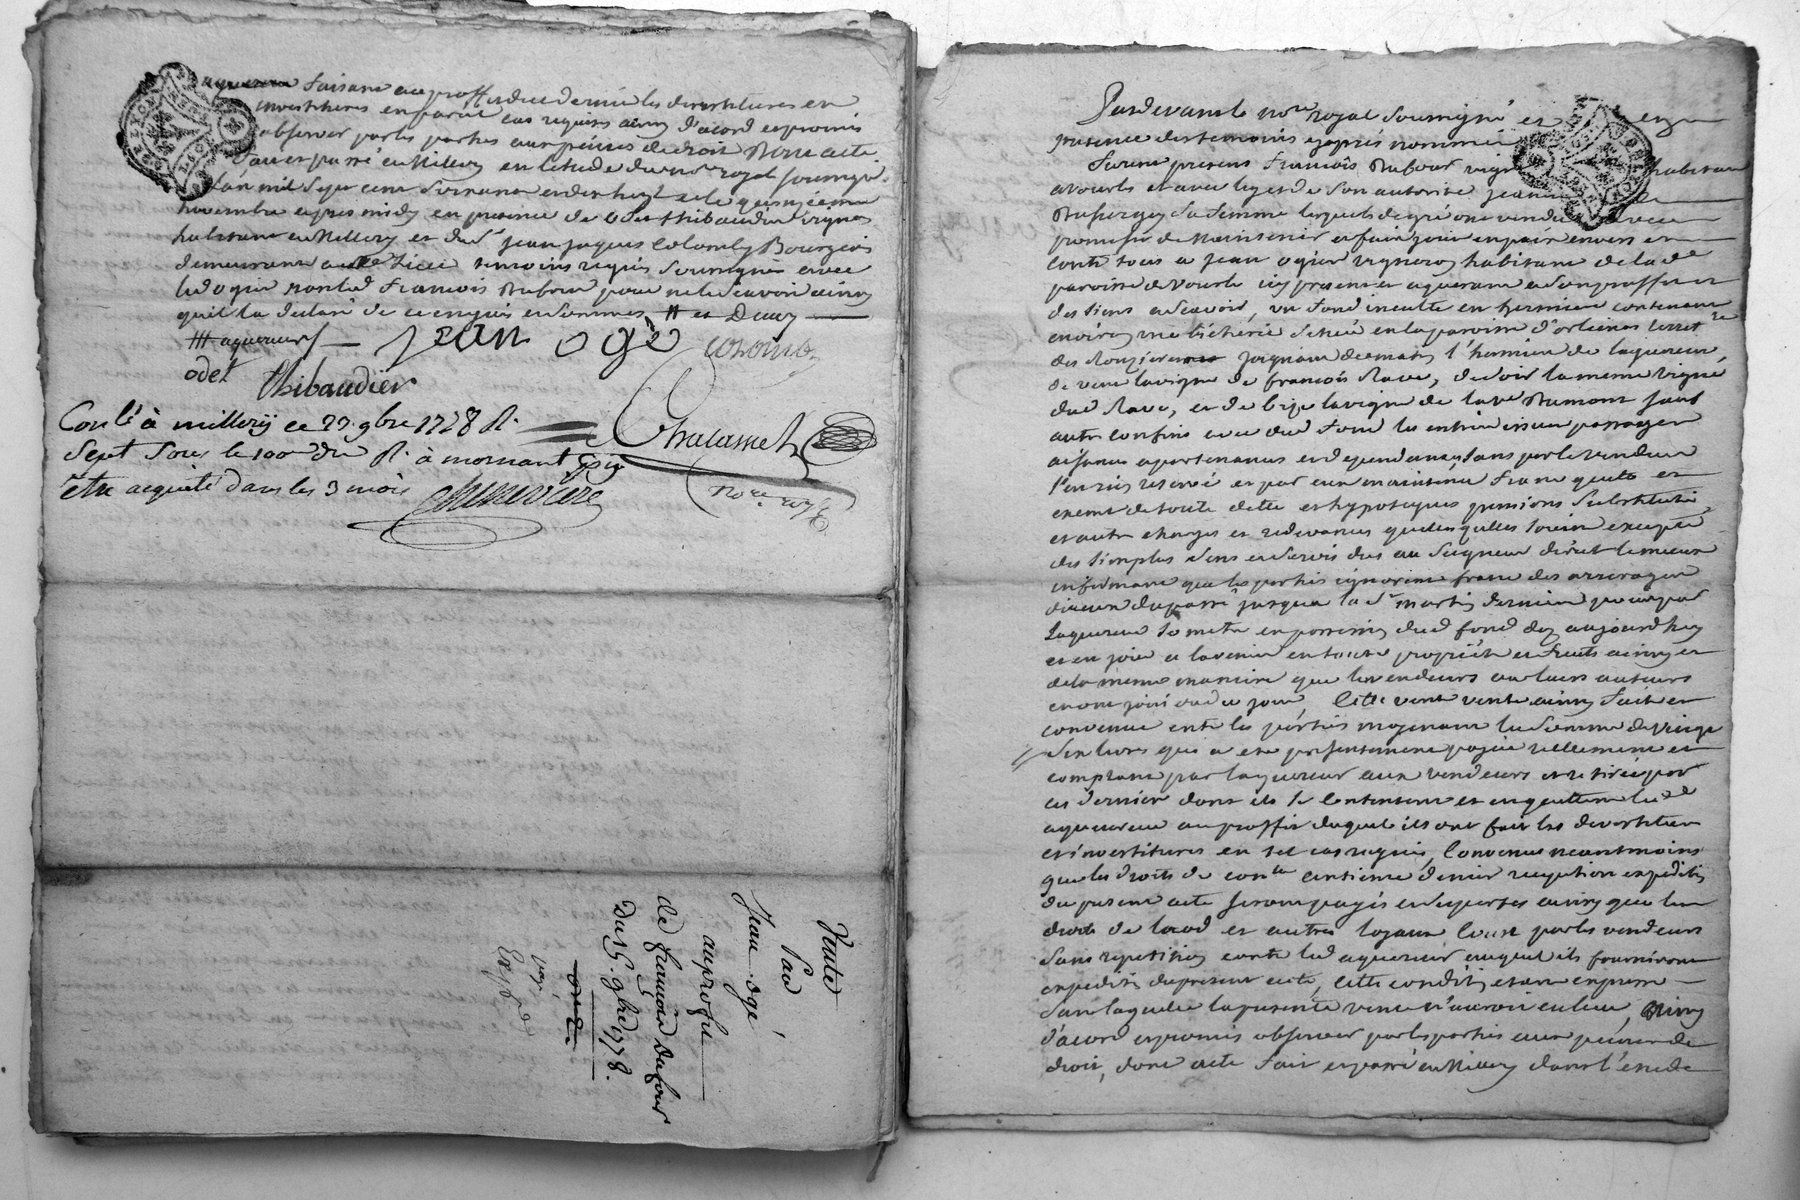 faisant au proffit dud dernier les devestitures en
investitures en pareil cas requises ainsy d'acord et promis
observer par les parties aux peines de droit dont acte
fait et passé a Millery en l'etude du no.re royal soussigné
l'an mil sept cent septante et dix huit et le quinzieme
novembre apres midy en presence de odet thibaudier vigneron
habitant a Millery et du Sr jean jaques Colomby Bourgeois
demeurant aud lieu temoins requis soussignés avec
led ogier non led François Dufour pour ne le sçavoir ainsy
qu'il la declaré de ce enquis et sommés
aquereur
jean ogé colomby
odet
thibaudier
Conlé à millery ce 27. gbre 1778 R.
Sept Sous le 100e du R. à mornant pr
être acquité dans les 3 mois
Chalamel
no.re royal
Vente
Par
Jean ogé
au profit
de françois dufour
Du 15. gbre 1778.
Expé
Pardevant le no.re royal soussigné et en
presence des temoins cy aprés nommés
furent presens François Dufour vigneron habitant
a Vourles et avec luy et de son autorité jeanne
sa femme lesquels de gré ont vendu avec
promesse de maintenir et faire jouir en paix envers et
contre tous a jean ogier vigneron habitant de lad
paroisse de Vourle icy present et aquerant a son proffit et
des siens a sçavoir, un fond inculte en hermier contenant
environ une bicherée scitué en la paroisse d'orlienas terr.re
des Rouzieres joignant de matin l'hermier de laquereur,
de vent la vigne de françois Rave, de soir la meme vigne
dud Rave, et de bize la vigne de la ve Dumont sauf
autres confins avec dud fond les entrées issues passages
aisances apartenances et dependances sans par le vendeur
s'en rien reservé et par eux maintenu franc quitte et
exempt de toute dette et hypoteques pensions substitution
et autre charges et redevances quelles qu'elles soient excepté
des simples cens et servis dus au Seigneur direct le mieux
informant que les parties ignorent franc des arrerages
d'iceux du passé jusqu'a la St martin dernier pour par
laquereur se mettre en possession dud fond dez aujourd'huy
et en jouir a l'avenir en toute proprieté et fruits ainsy et
de la meme maniere que les vendeurs ou leurs auteurs
en ont joui ou du jouir, Cette vente vente ainsy faite et
convenue entre les parties moyenant la somme de vingt
six livres qui a eté presentement payée rellement et
comptant par laquereur aux vendeurs et retirée par
ces dernier dont ils se contentent et en quittent led
aquereur au proffit duquel ils ont fait les devestitures
et investitures en tel cas requis, Convenus neantmoins
que les droits de conle centieme denier reception expedition
du present acte seront payés et suportés ainsy que les
droits de laod et autres loyaux coust par les vendeurs
sans repetition contre led aquereur auquel ils fourniront
expedition du present acte, cette condition etant expresse
sans laquelle la presente vente n'auroit eu lieu, ainsy
d'acord et promis observer par les parties aux peines de
droit, dont acte fait et passé a Millery dans l'etude